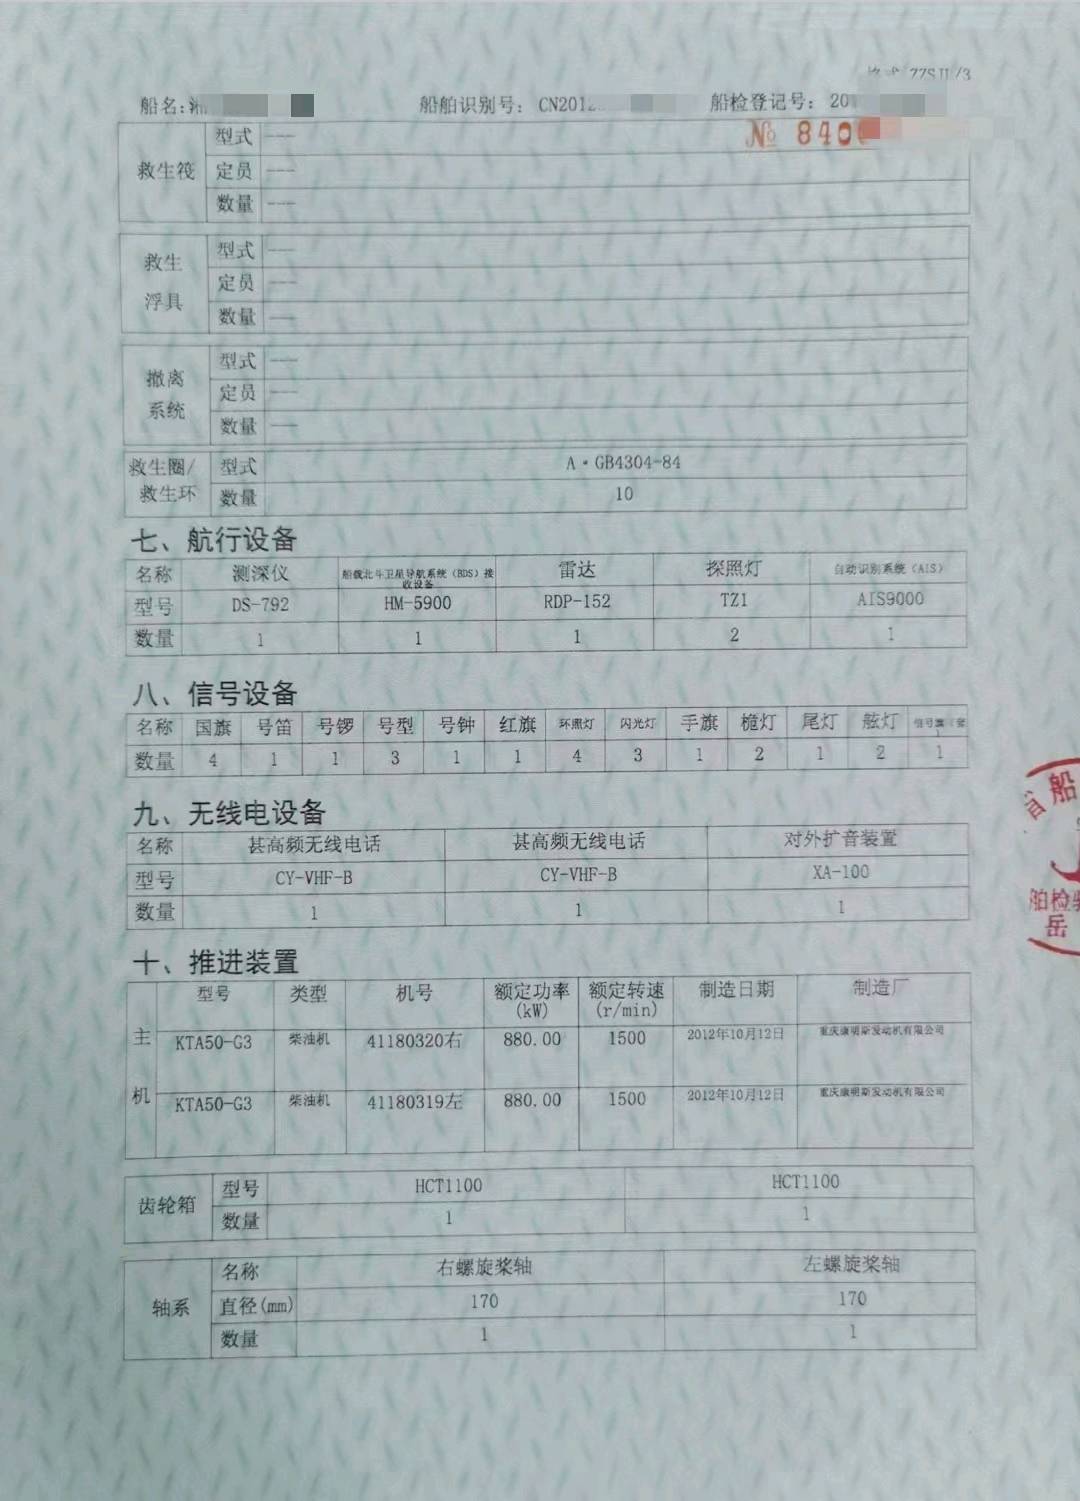 格式 ZZSJL/3
船名:湘 船舶识别号: CN2012 船检登记号: 201
№ 840
救生筏 型式 ---
定员 ---
数量 ---
救生浮具 型式 ---
定员 ---
数量 ---
撤离系统 型式 ---
定员 ---
数量 ---
救生圈/救生环 型式 A·GB4304-84
数量 10
七、航行设备
名称 测深仪 船载北斗卫星导航系统(BDS)接收设备 雷达 探照灯 自动识别系统(AIS)
型号 DS-792 HM-5900 RDP-152 TZ1 AIS9000
数量 1 1 1 2 1
八、信号设备
名称 国旗 号笛 号锣 号型 号钟 红旗 环照灯 闪光灯 手旗 桅灯 尾灯 舷灯 信号旗(套
数量 4 1 1 3 1 1 4 3 1 2 1 2 1
九、无线电设备
名称 甚高频无线电话 甚高频无线电话 对外扩音装置
型号 CY-VHF-B CY-VHF-B XA-100
数量 1 1 1
十、推进装置
主机 型号 类型 机号 额定功率(kW) 额定转速(r/min) 制造日期 制造厂
KTA50-G3 柴油机 41180320右 880.00 1500 2012年10月12日 重庆康明斯发动机有限公司
KTA50-G3 柴油机 41180319左 880.00 1500 2012年10月12日 重庆康明斯发动机有限公司
齿轮箱 型号 HCT1100 HCT1100
数量 1 1
轴系 名称 右螺旋桨轴 左螺旋桨轴
直径(mm) 170 170
数量 1 1
省船
舶检验
岳